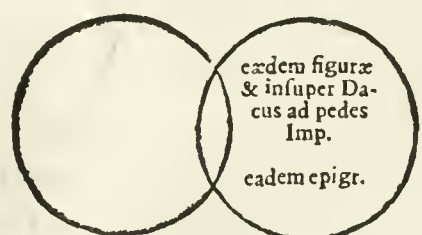 eædem figuræ
& inſuper Da-
cus ad pedes
Imp.
eadem epigr.